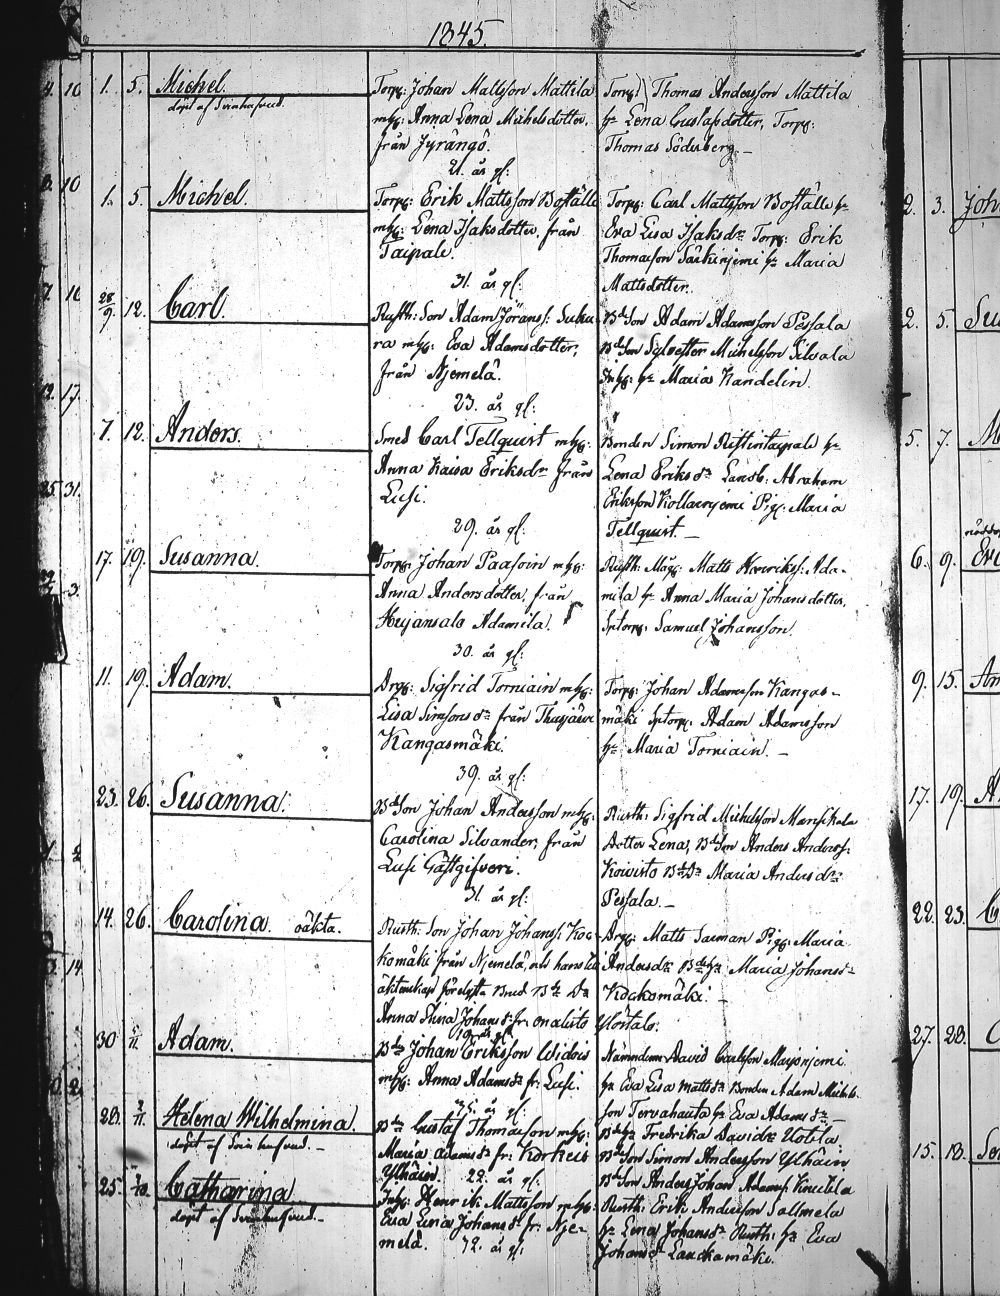 1845.
1. 5. Michel.
döpt af Svinhufvud.
Torp: Johan Mattsson Mattila
mhg: Anna Lena Michelsdotter,
från Jyrängö.
21. år gl:
Torp: Thomas Andersson Mattila
hr Lena Gustafsdotter, Torp:
Thomas Söderberg. –
1. 5. Michel.
Torp: Erik Mattsson Boställe
mhg: Lena Isaksdotter, från
Taipale.
31. år gl:
Torp: Carl Mattsson Boställe hr
Eva Lisa Isaksdr Torp: Erik
Thomasson Särkinjemi hr Maria
Mattsdotter.
28/9. 12. Carl.
Rusth: Son Adam Jöranss: Suku-
ra mhg: Eva Adamsdotter,
från Njemelä.
23. år gl:
Bdson Adam Adamsson Pessala
Bdson Sylvester Michelsson Silvala
Inhg: hr Maria Kandelin.
7. 12. Anders.
Smed Carl Tellquist mhg:
Anna Kaisa Eriksdr från
Lusi.
29. år gl:
Bonden Simon Ristintaipale hr
Lena Eriksdr Landb: Abraham
Eriksson Kollarinjemi Pig: Maria
Tellquist. –
17. 19. Susanna.
Torp: Johan Paasoin mhg:
Anna Andersdotter, från
Heyansalo Adamila.
30. år gl:
Rusth: Måg: Matts Henrikss: Ada-
mila hr Anna Maria Johansdotter,
Sptorp: Samuel Johansson.
11. 19. Adam.
Drg: Sigfrid Torniain mhg:
Lisa Simonsdr från Thasjärvi
Kangasmäki.
39. år gl:
Torp: Johan Adamsson Kangas-
mäki Sptorp: Adam Adamsson
hr Maria Torniain. –
23. 26. Susanna.
Bdson Johan Andersson mhg:
Carolina Silvander, från
Lusi Gästgifveri.
31. år gl:
Rusth: Sigfrid Michelsson Marsikala
Dotter Lena, Bdson Anders Anderss:
Koivisto Bdedr Maria Andersdr
Pessala. –
14. 26. Carolina. oäkta.
Rusth: Son Johan Johanss: Koc-
komäki från Njemelä, och hans
äktenskap förelofta Brud Bde Dr
Anna Stina Johansdr fr:
Drg: Matts Saxman Pig: Maria
Andersdr Maria Johansdr
Kockomäki. –
30 Adam.
Bde Johan Eriksson Widois
mhg: Anna Adamsdr fr: Lusi.
35. år gl:
Nämndem: David Carlsson Marjonjemi
hr Eva Lisa Mattsdr Bonden Adam Michels-
son Tervahauta hr Eva Adamsdr
28. 2/11. Helena Wilhelmina.
döpt af Svinhufvud. –
Bde Gustaf Thomasson mhg:
Maria Adamsdr fr: Korkeis
Ylhäin. 22. år gl:
Fredrika Davidsdr Uotila
Bdson Simon Andersson Ylhäin
25. Catharina
döpt af Svinhufvud. –
Inhg: Henrik Mattsson mhg:
Eva Lena Johansdr fr: Nje-
melä. 42. år gl:
Bdson Anders Johan Adamss: Knuutila
Rusth: Erik Andersson Sallmela
hr Lena Johansdr Rusth: hr Eva
Johansdr Lauckamäki.
2. 3. Joh
2. 5. Su
5. 7. M
6. 9.
9. 15. An
17. 19. A
22. 23. C
27. 28. C
15. 18.